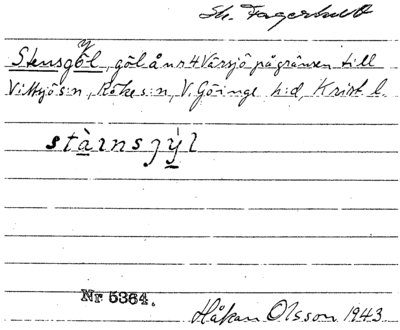 Stensgöl, göl å nr 4 Värsjö på gränsen till
Vittsjö s:n, Röke s:n, V. Göinge h:d, Krist. l.
stàɪnsȷýl
Nr 5364.
Håkan Olsson 1943